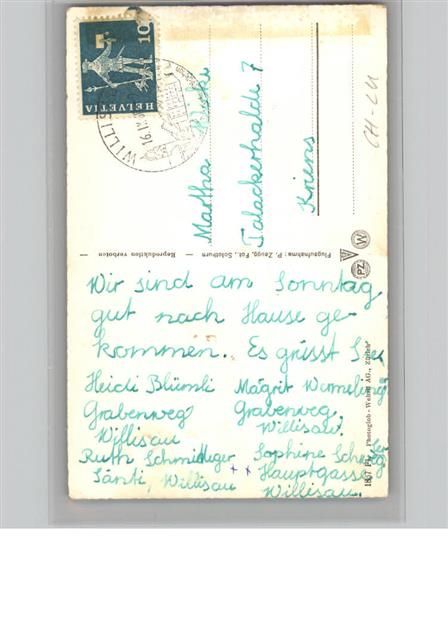 Wir sind am Sonntag
gut nach Hause ge-
kommen. Es grüsst Sie
Heidi Blümli
Grabenweg
Willisau
Magrit Wermelinger
Grabenweg,
Willisau.
Ruth Schmidiger
Sänti, Willisau
Sophine
Hauptgasse
Willisau.
Martha
Talackerhalde 7
Kriens
CH-LU
HELVETIA
10
WILLIS
16.IV
Flugaufnahme: P. Zaugg, Fot., Solothurn
Reproduktion verboten
PZ
W
Photoglob-Wehrli AG., Zürich